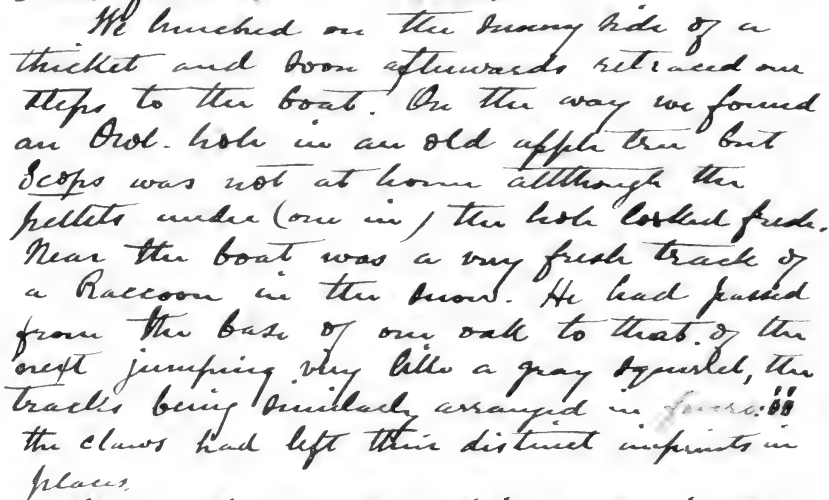 We lunched on the sunny side of a
thicket and soon afterwards retraced our
steps to the boat. On the way we found
an Owl-hole in an old apple tree but
Scops was not at home allthough the
pellets under (one in) the hole looked fresh.
Near the boat was a very fresh track of
a Raccoon in the snow. He had passed
from the base of one oak to that of the
next jumping very like a gray squirrel, the
tracks being similarly arranged in fours:
the claws had left their distinct imprints in
places.